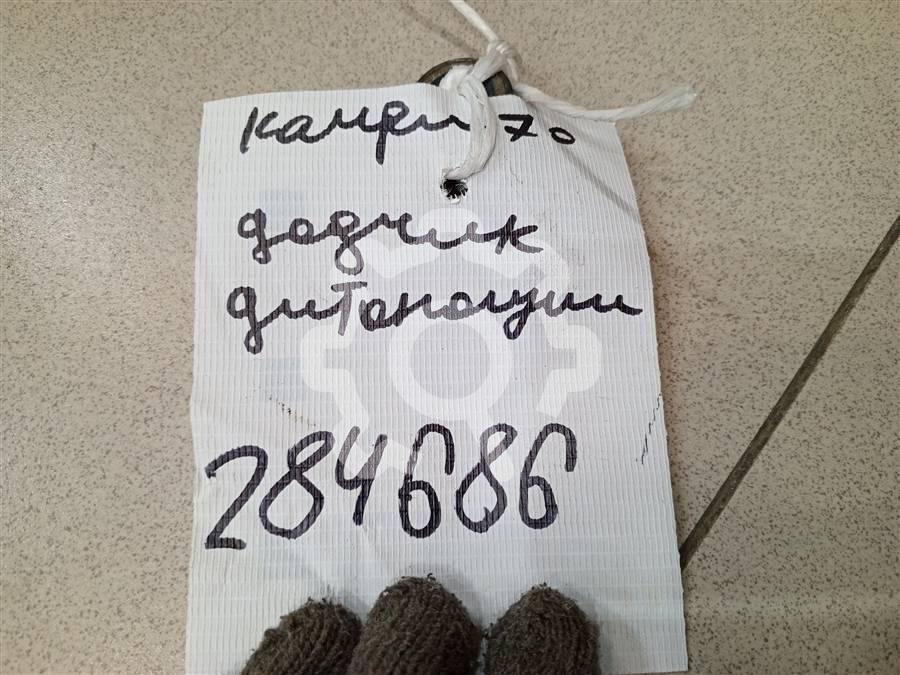 камри 70
дадчик
дитонации
284686